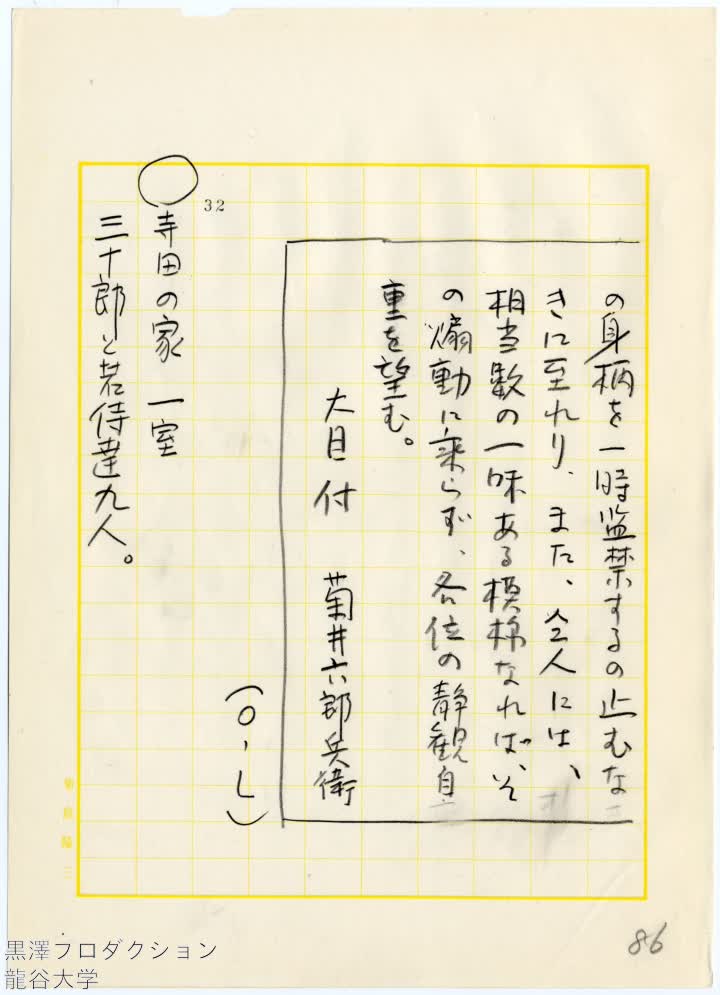 の身柄を一時監禁するの止むな
きに至れり、また、仝人には、
相当数の一味ある模様なれば、そ
の煽動に乗らず、各位の静観自
重を望む。
大目付 菊井六郎兵衛
(O・L)
32
○寺田の家 一室
三十郎と若侍達九人。
86
黒澤プロダクション
龍谷大学